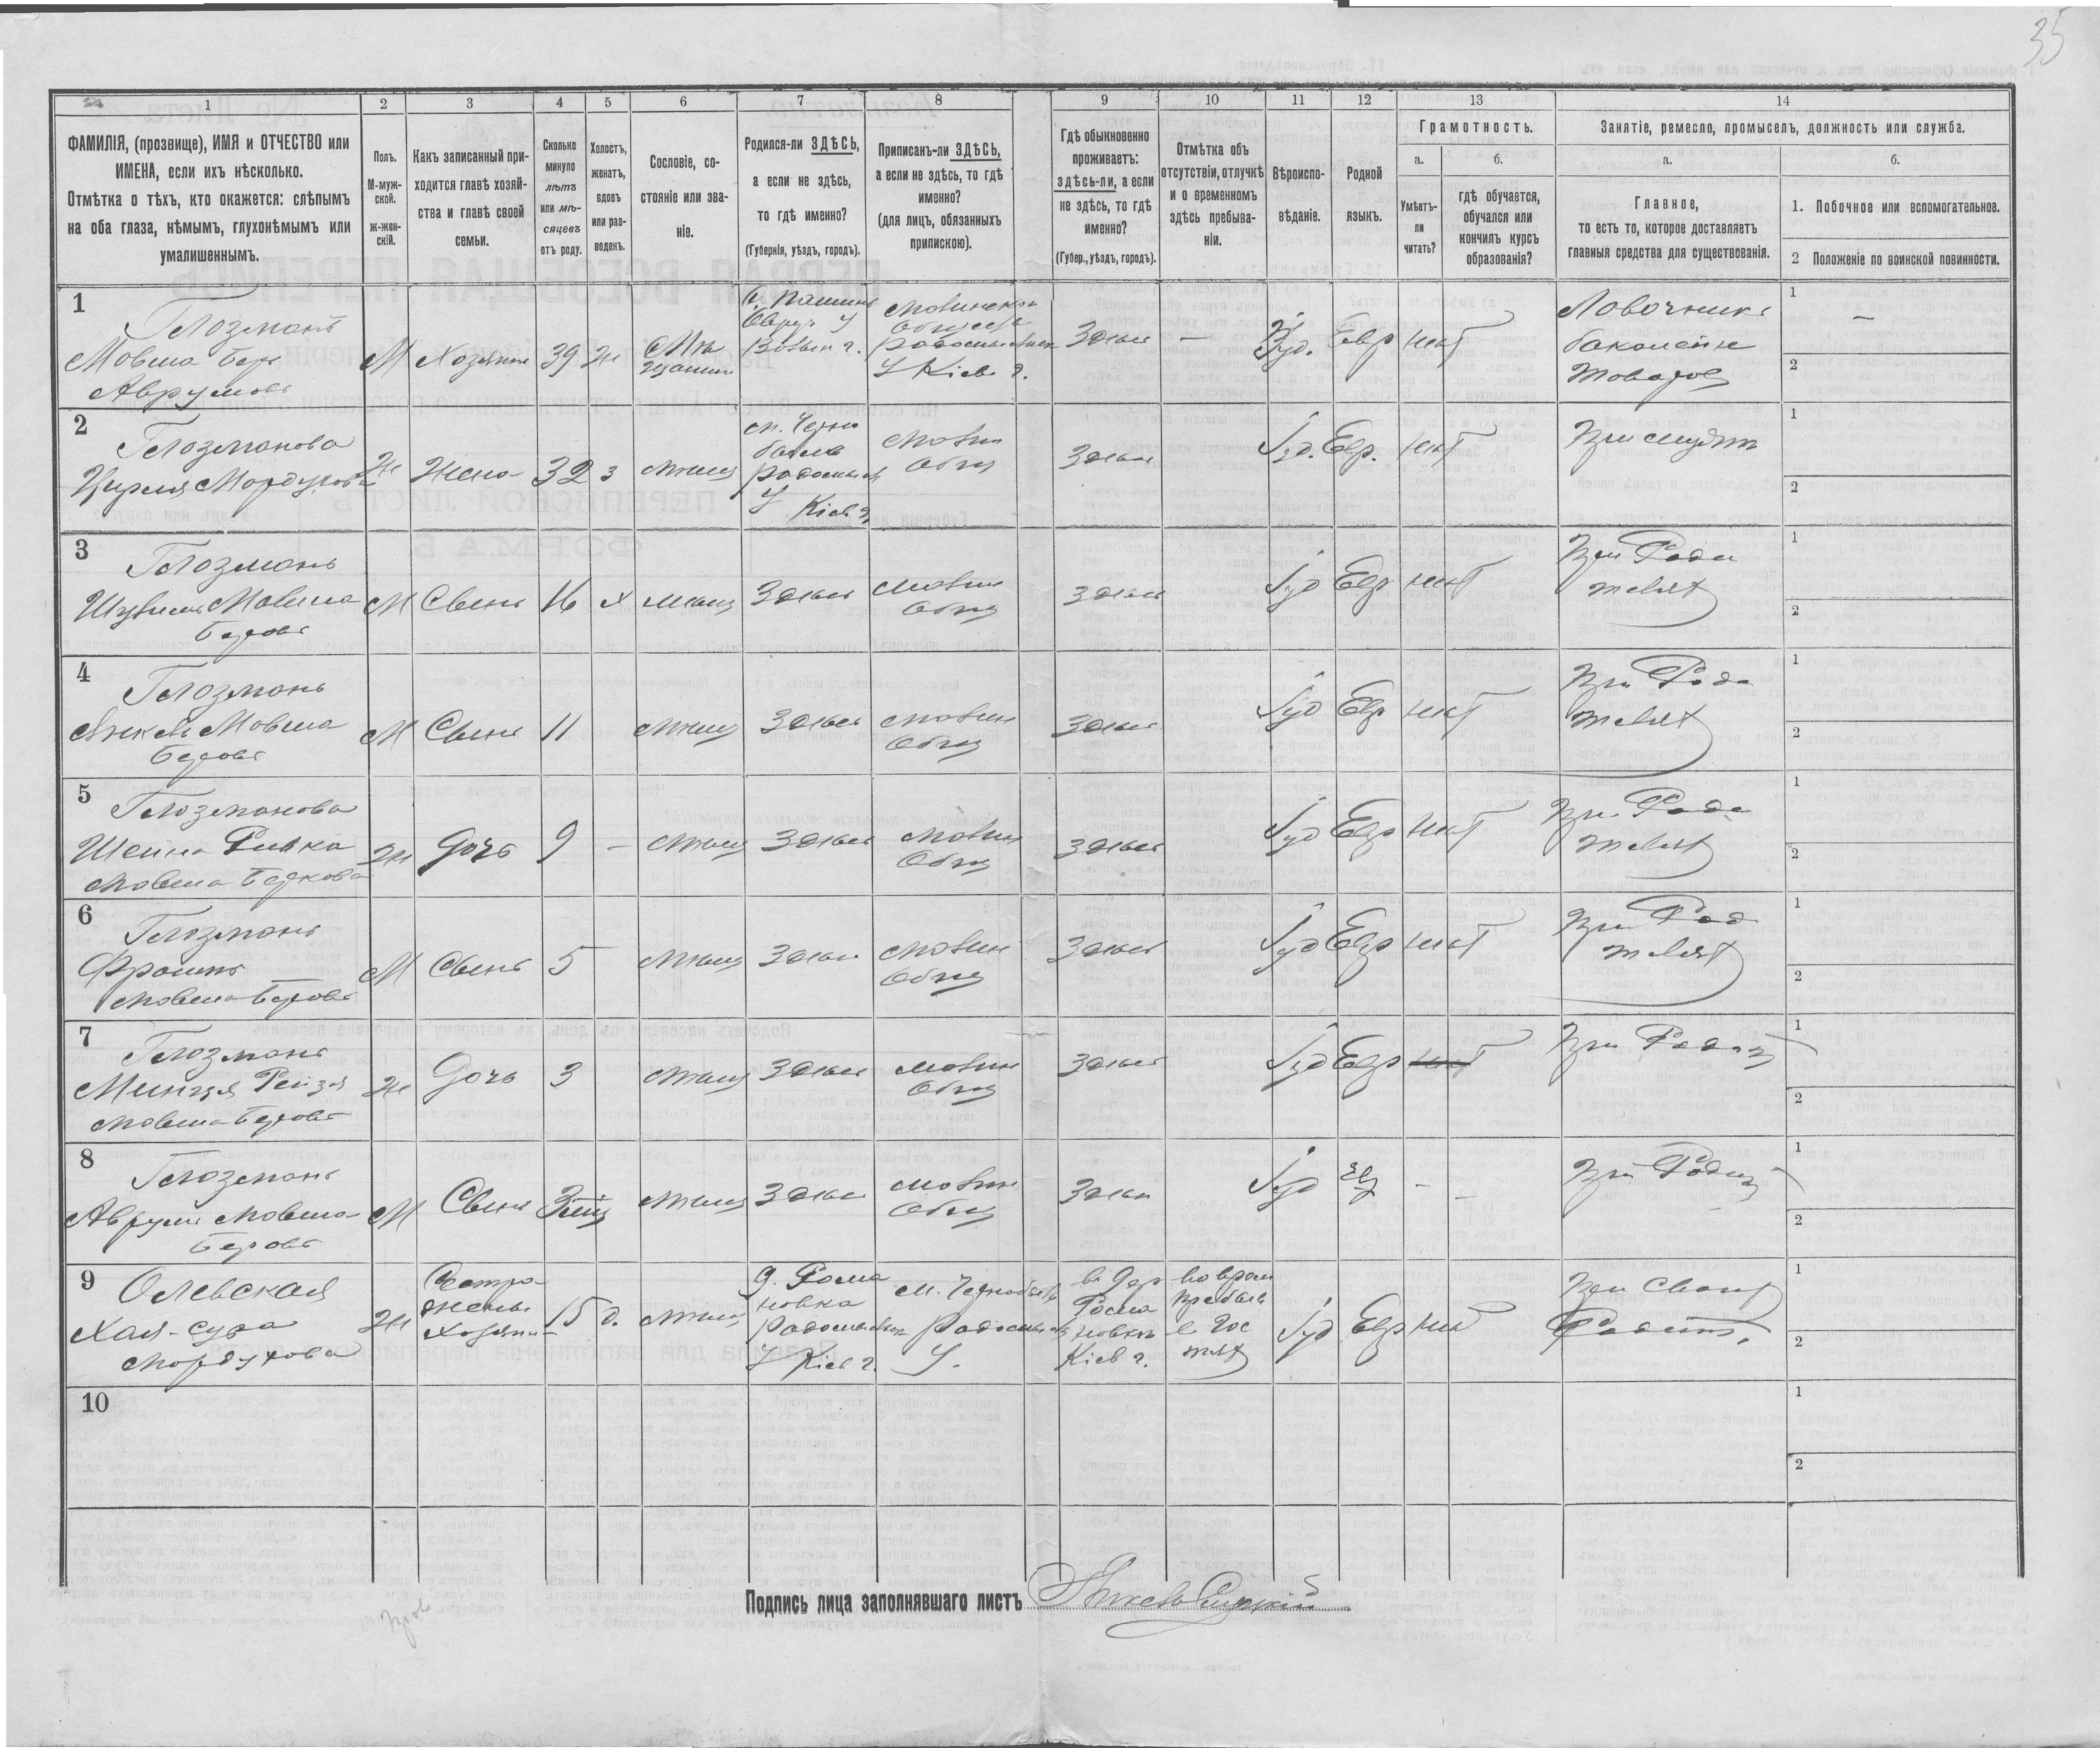 35
1
2
3
4
5
6
7
8
9
10
11
12
13
14
ФАМИЛІЯ, (прозвище), ИМЯ и ОТЧЕСТВО или
ИМЕНА, если ихъ нѣсколько.
Отмѣтка о тѣхъ, кто окажется: слѣпымъ
на оба глаза, нѣмымъ, глухонѣмымъ или
умалишеннымъ.
Полъ.
М-муж-
ской.
ж-жен-
скій.
Какъ записанный при-
ходится главѣ хозяй-
ства и главѣ своей
семьи.
Сколько
минуло
лѣтъ
или мѣ-
сяцевъ
отъ роду.
Холостъ,
женатъ,
вдовъ
или раз-
веденъ.
Сословіе, со-
стояніе или зва-
ніе.
Родился-ли ЗДѢСЬ,
а если не здѣсь,
то гдѣ именно?
(Губернія, уѣздъ, городъ).
Приписанъ-ли ЗДѢСЬ,
а если не здѣсь, то гдѣ
именно?
(для лицъ, обязанныхъ
припискою).
Гдѣ обыкновенно
проживаетъ:
здѣсь-ли, а если
не здѣсь, то гдѣ
именно?
(Губер., уѣздъ, городъ).
Отмѣтка объ
отсутствіи, отлучкѣ
и о временномъ
здѣсь пребыва-
ніи.
Вѣроиспо-
вѣданіе.
Родной
языкъ.
Грамотность.
а.
б.
Умѣетъ-
ли
читать?
гдѣ обучается,
обучался или
кончилъ курсъ
образованія?
Занятіе, ремесло, промыселъ, должность или служба.
а.
б.
Главное,
то есть то, которое доставляетъ
главныя средства для существованія.
1. Побочное или вспомогательное.
2 Положеніе по воинской повинности.
1
Глозманъ
Мовша Беръ
Аврумовъ
М
Хозяинъ
39
ж
Мѣ
щанин
Овруч У
Волын г.
У Кіев г.
Здѣсь
—
Іуд.
Евр
нѣт
Лавочникъ
бакалейн
товаров
1
—
2
2
Глозманова
Мордухов
Ж
Жена
32
з
мѣщ
м. Черно
быль
Радомысл
У Кіев г
Общ
Здѣсь
Іуд.
Евр.
нѣт
1
2
3
Глозманъ
Мовша
Беровъ
М
Сынъ
16
х
мѣщ
Здѣсь
Общ
здѣсь
Іуд
Евр
нѣт
При Роди
телях
1
2
4
Глозманъ
Мовша
Беровъ
М
Сынъ
11
мѣщ
Здѣсь
Общ
здѣсь
Іуд
Евр
нѣт
При Роди
телях
1
2
5
Глозманова
Шейна Ривка
Мовша Беркова
Ж
Дочь
9
—
мѣщ
Здѣсь
Общ
здѣсь
Іуд
Евр
нѣт
При Роди
телях
1
2
6
Глозманъ
Мовша Беровъ
М
Сынъ
5
мѣщ
Здѣсь
Общ
Здѣсь
Іуд
Евр
нѣт
При Роди
телях
1
2
7
Глозманъ
Рейзя
Мовша Беровъ
Ж
Дочь
3
мѣщ
Здѣсь
Общ
Здѣсь
Іуд
Евр
нѣт
При Родит
1
2
8
Глозманъ
Аврумъ Мовша
Беровъ
М
Сынъ
мѣщ
Здѣсь
Общ
Здѣсь
Іуд
Ев
-
-
При Родит
1
2
9
Олевская
Хая-Сура
Мордухова
Ж
Сестра
жены
Хозяина
15
д.
мѣщ
д. Рома
новка
Радомысльск
У Кіев г.
м. Чернобыль
Радомысл
У.
въ дер
Рома
новкѣ
Кіев г.
во врем
пребыв
в гос
тях
Іуд
Евр
нѣт
При своих
Родит.
1
2
10
1
2
Подпись лица заполнявшаго листъ